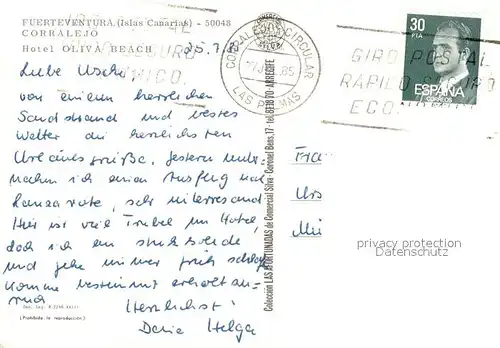 FUERTEVENTURA (Islas Canarias) - 50048
CORRALEJO
Hotel OLIVA BEACH
25.7.
Liebe Uschi
von einem herrlichen
Sandstrand und bestes
Wetter die herzlichsten
Urlaubsgrüße, gestern unter-
nahm ich einen Ausflug nach
Lanzarote, sehr interessant
Hier ist viel Trubel im Hotel,
doch ich bin
und gehe immer früh schlafen
komme bestimmt erholt an
Herzlichst!
Deine Helga
Dep. Leg. B.
(Prohibida la reproducción)
Colección LAS AFORTUNADAS de Comercial Silva - Coronel Bens, 17 - tel. - ARRECIFE
CORREO CIRCULAR
LAS PALMAS
GIRO POSTAL
RAPIDO SEGURO
ECO
30
PTA
ESPAÑA
CORREOS
privacy protection
Datenschutz